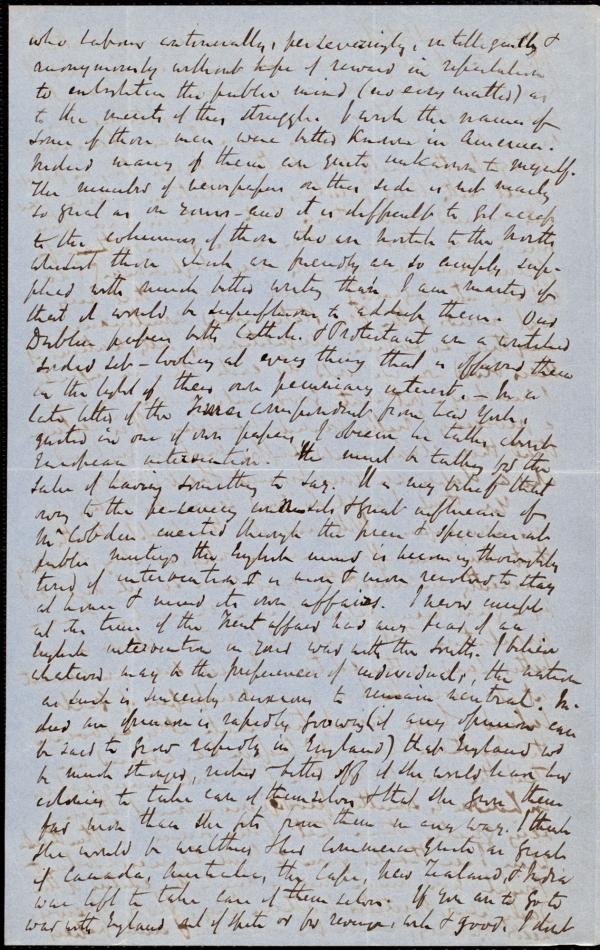 who labour continually, perseveringly, intelligently &
anonymously without hope of reward in reputation
to enlighten the public mind (no easy matter) as
to the merits of this struggle. I wish the names of
some of those men were better known in America.
Indeed many of them are quite unknown to myself.
The number of newspapers on this side is not nearly
so great as on yours – and it is difficult to get access
to the columns of those who are hostile to the North
whilst those which are friendly are so amply sup-
plied with much better writing than I am master of
that it would be superfluous to address them. Our
Dublin papers both Catholic & Protestant are a wretched
sordid set – looking at every thing that is offered them
in the light of their own pecuniary interest. – In a
late letter of the Times correspondent from New York,
quoted in one of our papers, I observe he talks about
European intervention. He must be talking for the
sake of having something to say. It is my belief that
owing to the persevering counsels & great influence of
Mr Cobden exerted through the press & speeches at
public meetings the English mind is becoming thoroughly
tired of intervention & is more & more resolved to stay
at home & mind its own affairs. I never except
at the time of the Trent affair had any fear of an
English intervention in your war with the South. I believe
whatever may be the preferences of individuals, the nation
as such is sincerely anxious to remain neutral. In-
deed an opinion is rapidly growing (if any opinion can
be said to grow rapidly in England) that England wd
be much stronger, richer & better off if she would leave her
colonies to take care of themselves & that she gives them
far more than she gets from them in any way. I think
she would be wealthier & her commerce quite as great
if Canada, Australia, the Cape, New Zealand, & India
was left to take care of themselves. If you are to go to
war with England out of spite or for revenge, well & good. I don't